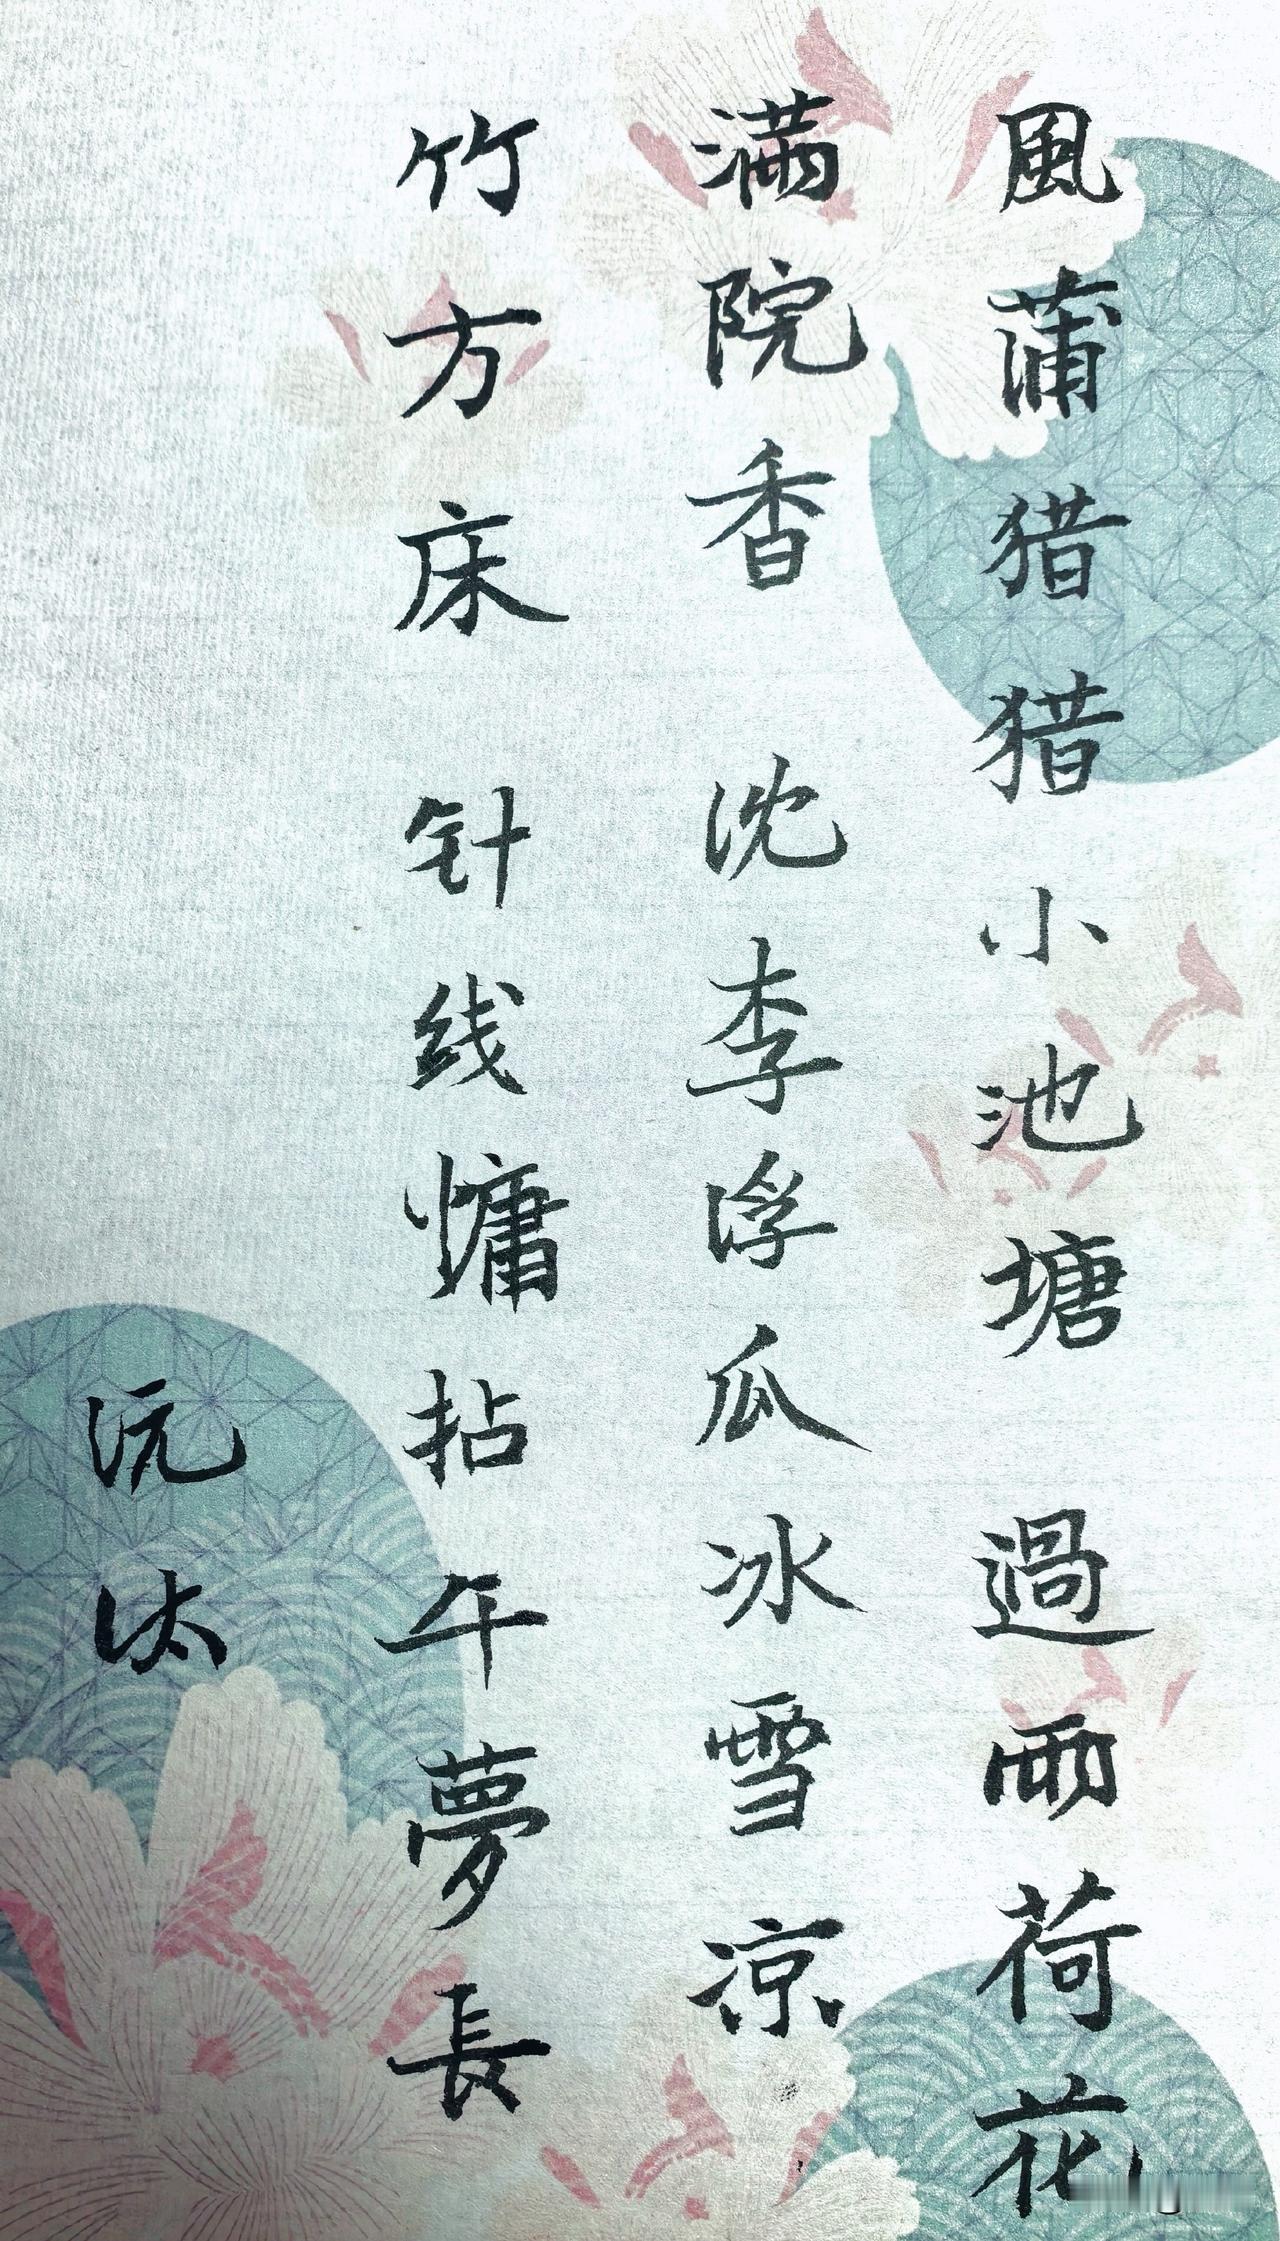 風蒲猎猎小池塘 過雨荷花
满院香 沈李浮瓜冰雪凉
竹方床 针线慵拈午夢長
沅汰